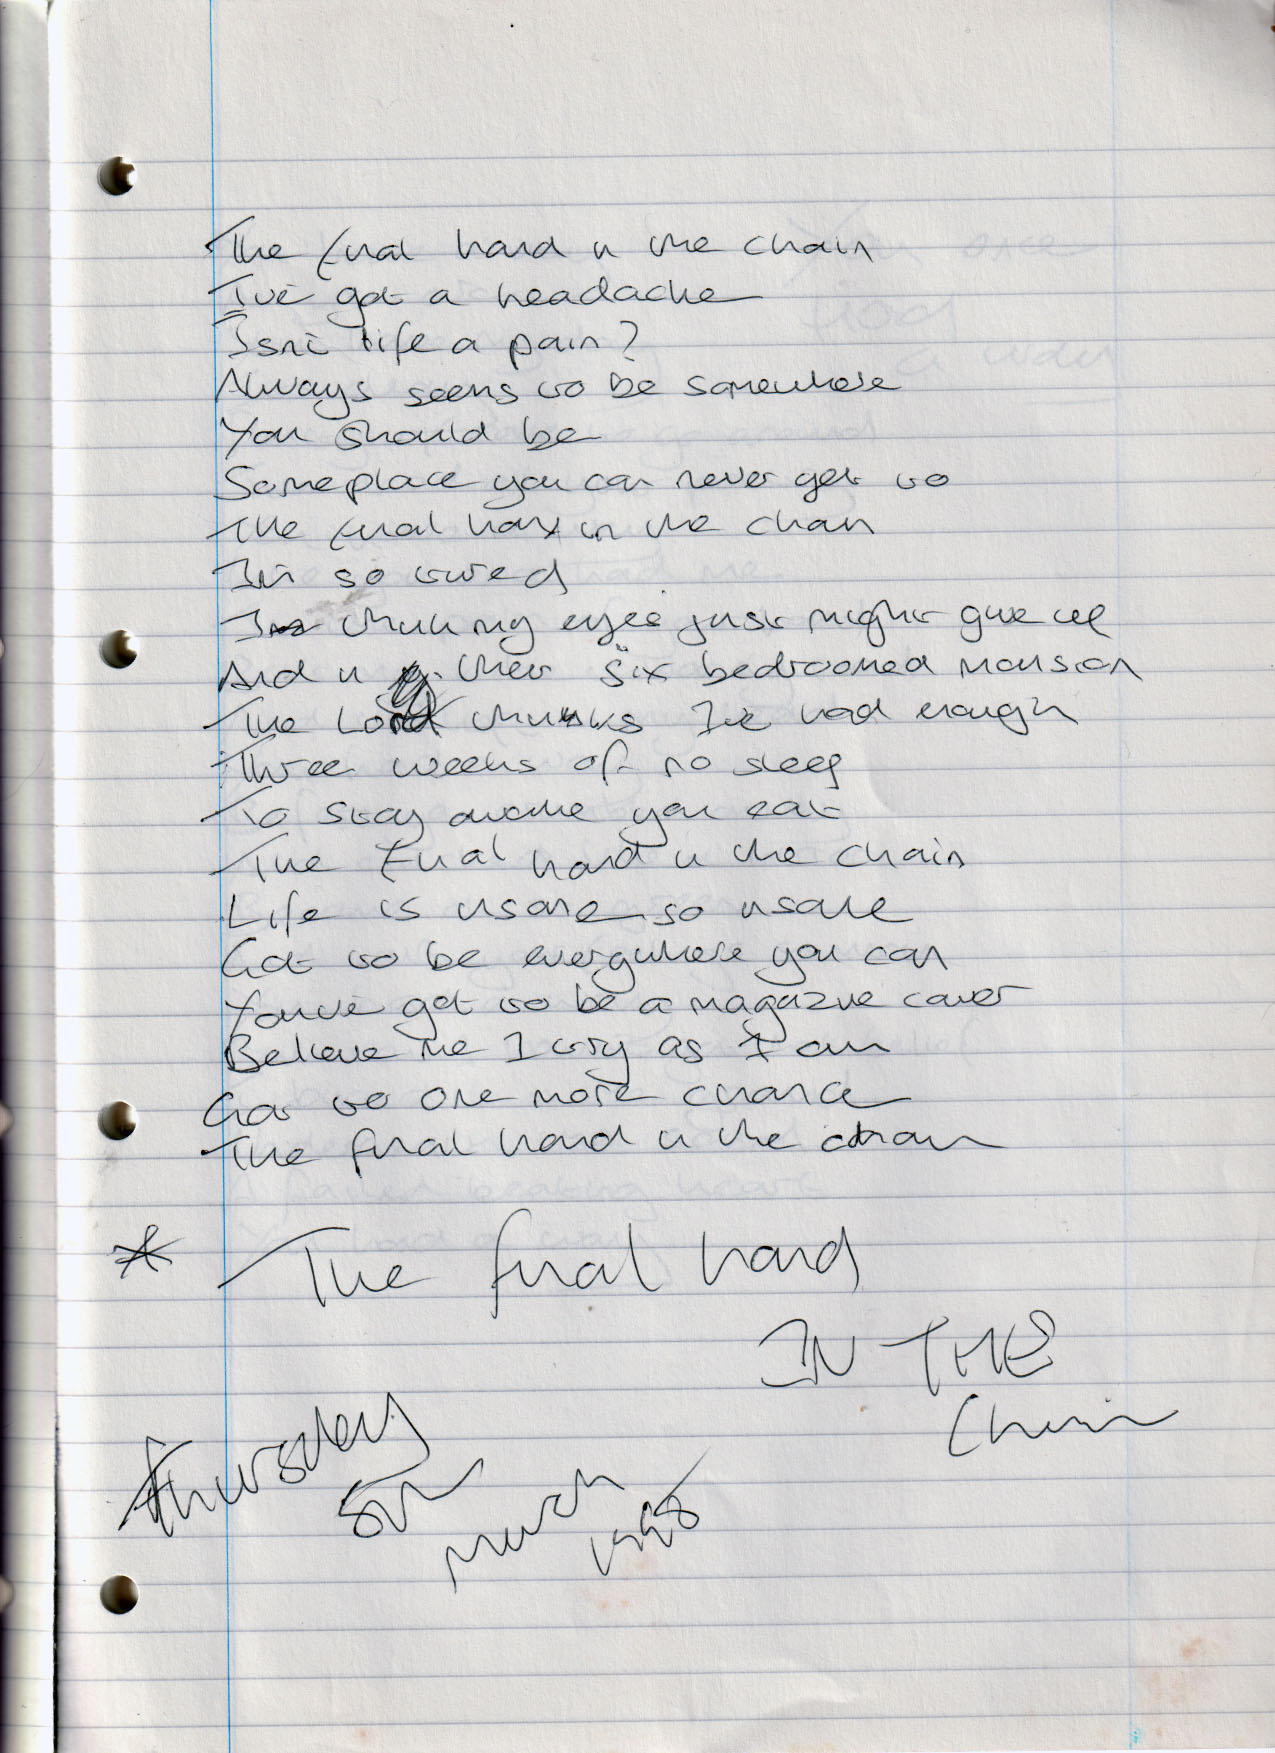 The final hand in the chain
I've got a headache
Isn't life a pain?
Always seems to be somewhere
You should be
Someplace you can never get to
The final hand in the chain
I'm so tired
I think my eyes just might give up
And in their six bedroomed mansion
The Lord thinks I've had enough
Three weeks of no sleep
To stay awake you eat
The final hand in the chain
Life is insane so insane
Got to be everywhere you can
You've got to be a magazine cover
Believe me I try as I am
Got to one more chance
The final hand in the chain
* The final hand
IN THE
Chain
Thursday
5th
March
1998